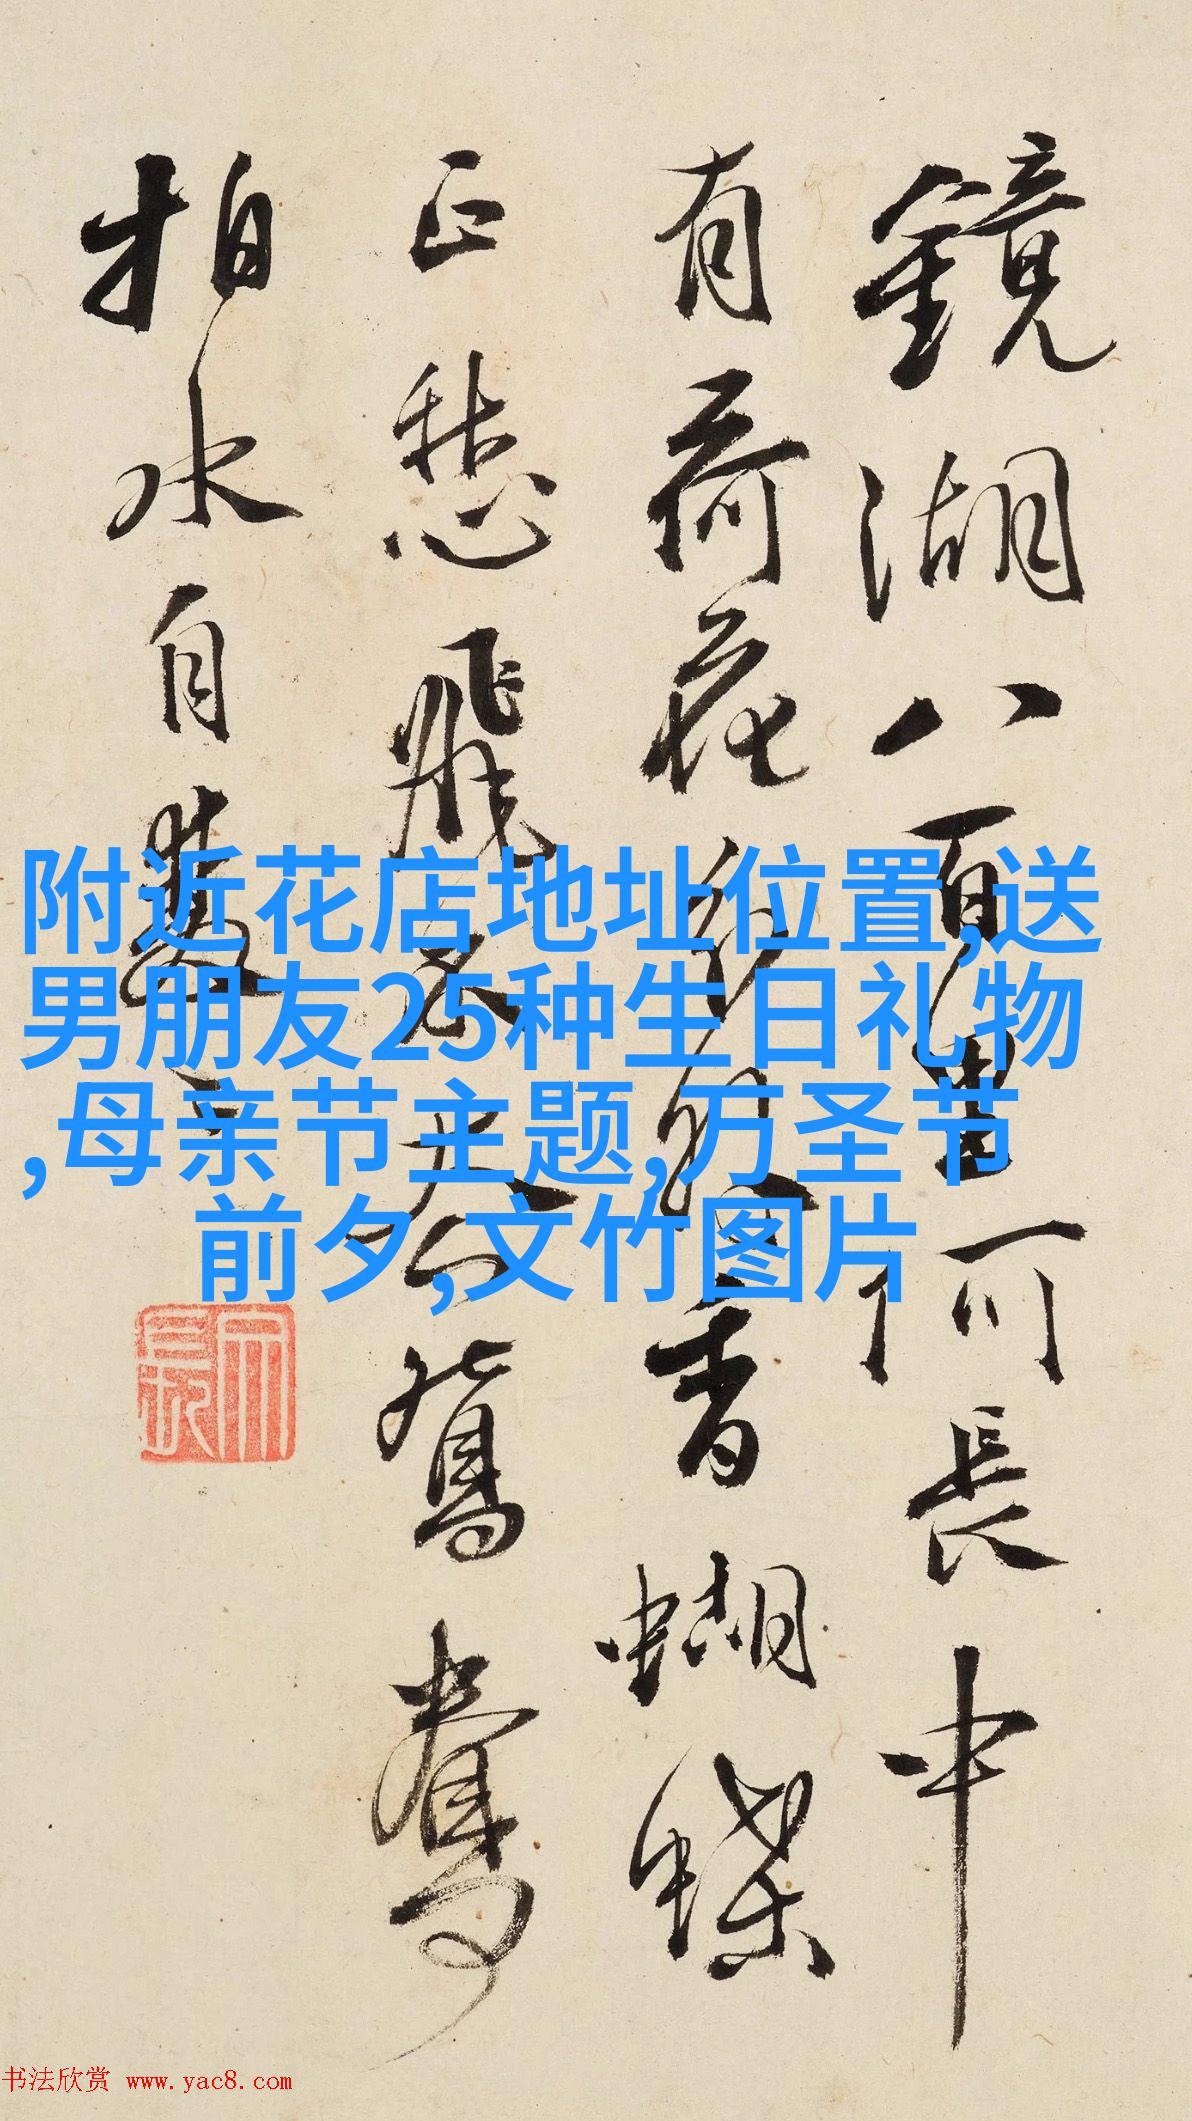 鏡湖八百里何長中
有荷花分外香蝴蝶
正愁飛不過鴛鴦
拍水自雙
附近花店地址位置,送
男朋友25种生日礼物
,母亲节主题,万圣节
前夕,文竹图片
书法欣赏 www.yac8.com